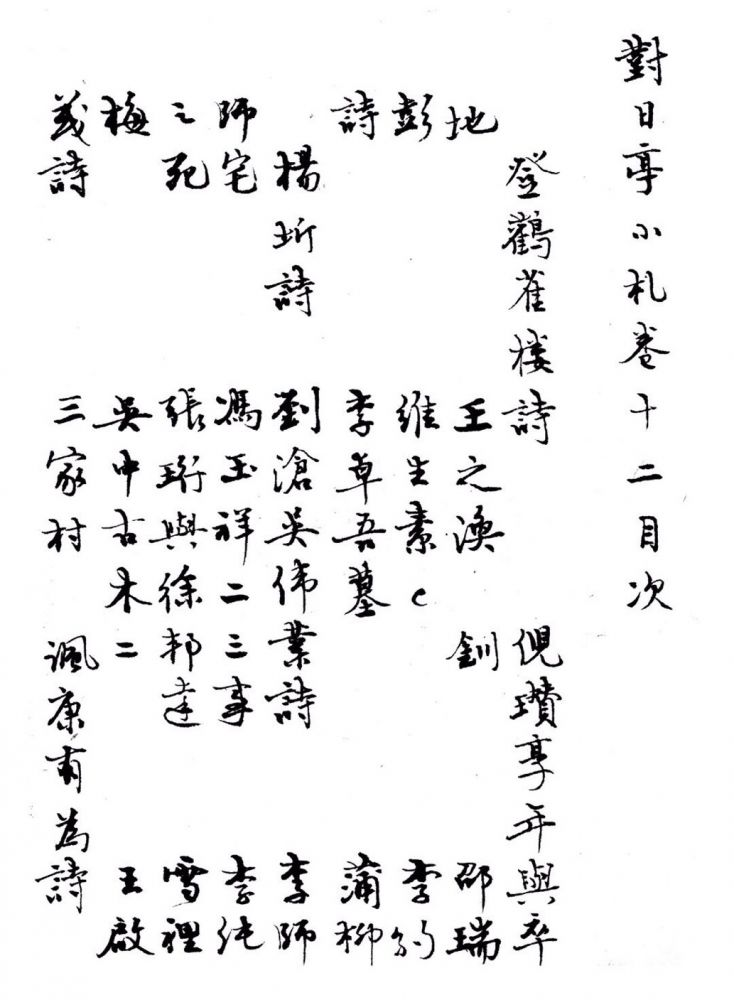 對日亭小札卷十二目次
登鸛雀楼詩 倪瓚享年與卒
地 王之渙 釗 邵瑞
彭 維生素c 李約
詩 李卓吾墓 蒲柳
楊圻詩 劉滄吳伟業詩 李師
師宅 馮玉祥二三事 李純
之死 張珩與徐邦達 雪裡
梅 吳中古木二 王啟
茂詩 三家村 諷康有為詩